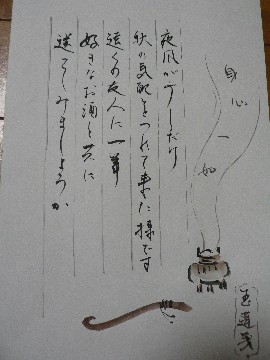 身心一如
夜風が少しだけ
秋の気配をつれて来た様です
遠くの友人に一筆
好きなお酒と共に
送ってみましょうか